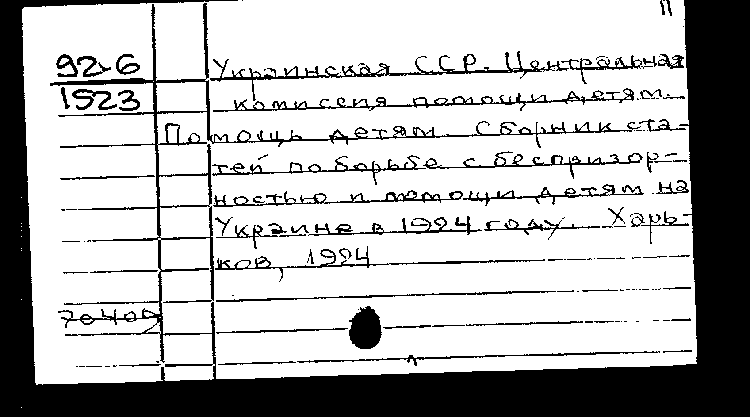 П
92-6 Украинская ССР. Центральная
1523 комиссия помощи детям.
Помощь детям. Сборник ста-
тей по борьбе с беспризор-
ностью и помощи детям на
Украине в 1924 году. Харь-
ков, 1924
70409